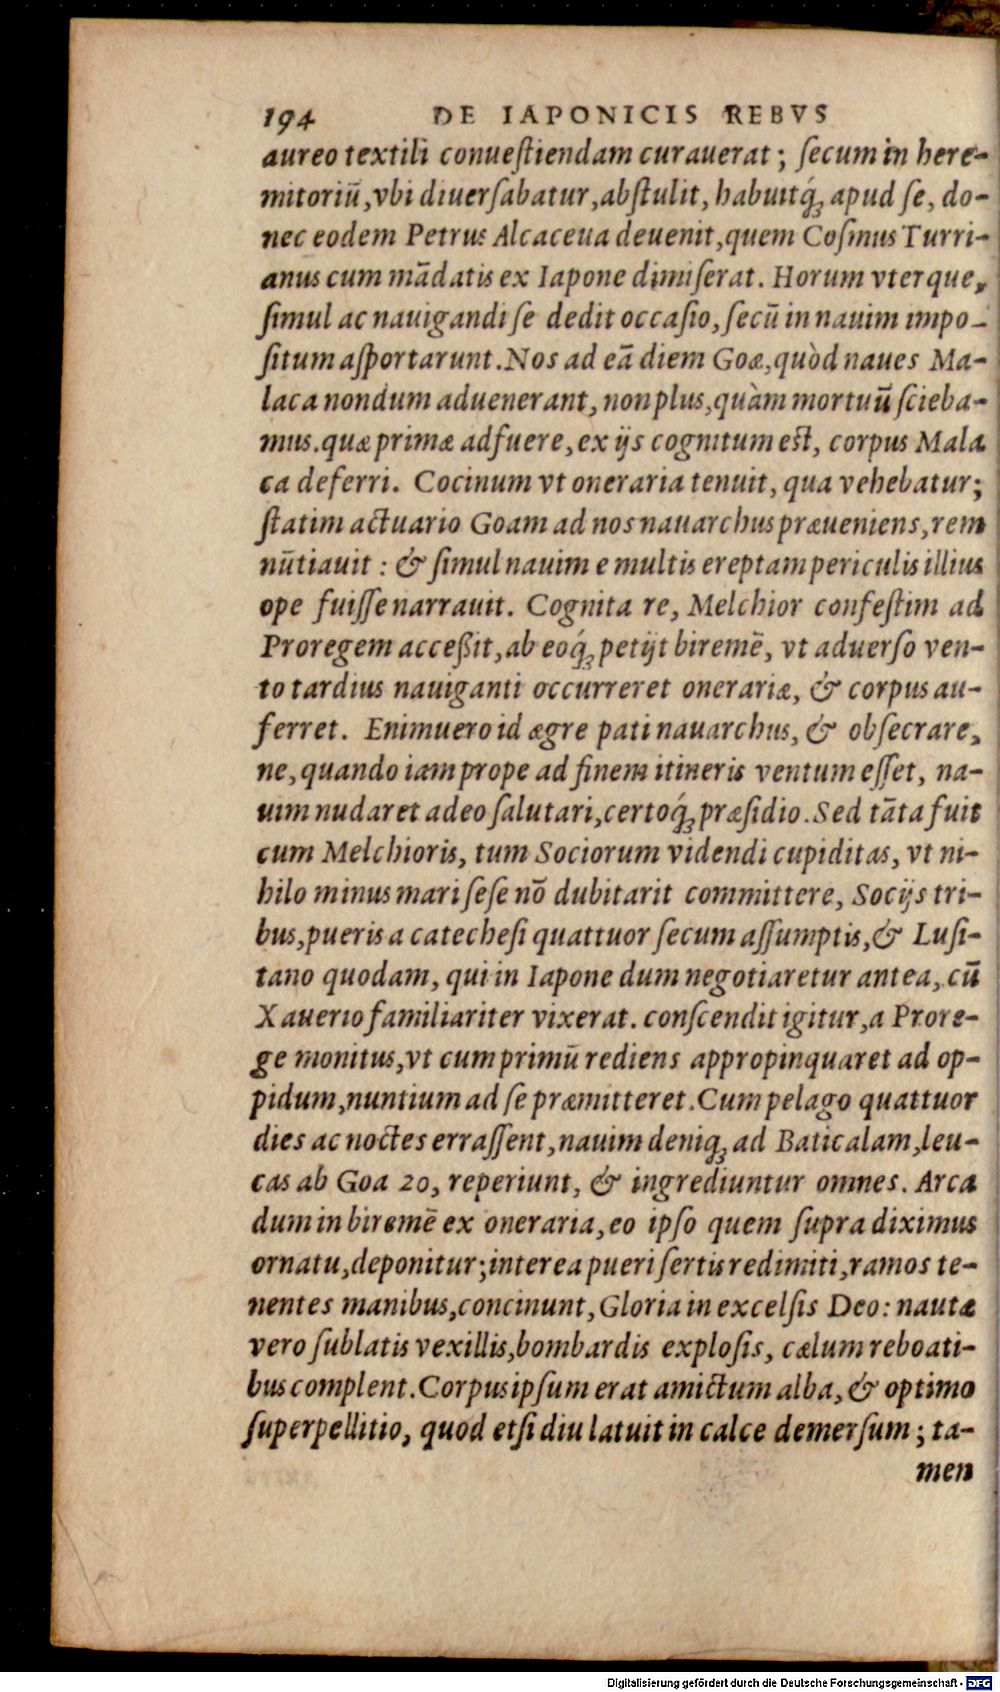 194 DE IAPONICIS REBVS
aureo textili conuestiendam curauerat; secum in here-
mitoriũ, vbi diuersabatur, abstulit, habuitq́; apud se, do-
nec eodem Petrus Alcaceua deuenit, quem Cosmus Turri-
anus cum mãdatis ex Iapone dimiserat. Horum vterque,
simul ac nauigandi se dedit occasio, secũ in nauim impo-
situm asportarunt. Nos ad eã diem Goæ, quòd naues Ma-
laca nondum aduenerant, non plus, quàm mortuũ scieba-
mus. quæ primæ adfuere, ex ijs cognitum est, corpus Mala
ca deferri. Cocinum vt oneraria tenuit, qua vehebatur;
statim actuario Goam ad nos nauarchus præueniens, rem
nũtiauit: & simul nauim e multis ereptam periculis illius
ope fuisse narrauit. Cognita re, Melchior confestim ad
Proregem acceßit, ab eoq́; petijt biremẽ, vt aduerso ven-
to tardius nauiganti occurreret onerariæ, & corpus au-
ferret. Enimuero id ægre pati nauarchus, & obsecrare,
ne, quando iam prope ad finem itineris ventum esset, na-
uim nudaret adeo salutari, certoq́; præsidio. Sed tãta fuit
cum Melchioris, tum Sociorum videndi cupiditas, vt ni-
hilo minus mari sese nõ dubitarit committere, Socijs tri-
bus, pueris a catechesi quattuor secum assumptis, & Lusi-
tano quodam, qui in Iapone dum negotiaretur antea, cũ
Xauerio familiariter vixerat. conscendit igitur, a Prore-
ge monitus, vt cum primũ rediens appropinquaret ad op-
pidum, nuntium ad se præmitteret. Cum pelago quattuor
dies ac noctes errassent, nauim deniq; ad Baticalam, leu-
cas ab Goa 20, reperiunt, & ingrediuntur omnes. Arca
dum in biremẽ ex oneraria, eo ipso quem supra diximus
ornatu, deponitur; interea pueri sertis redimiti, ramos te-
nentes manibus, concinunt, Gloria in excelsis Deo: nautæ
vero sublatis vexillis, bombardis explosis, cælum reboati-
bus complent. Corpus ipsum erat amictum alba, & optimo
superpellitio, quod etsi diu latuit in calce demersum; ta-
men
Digitalisierung gefördert durch die Deutsche Forschungsgemeinschaft - DFG